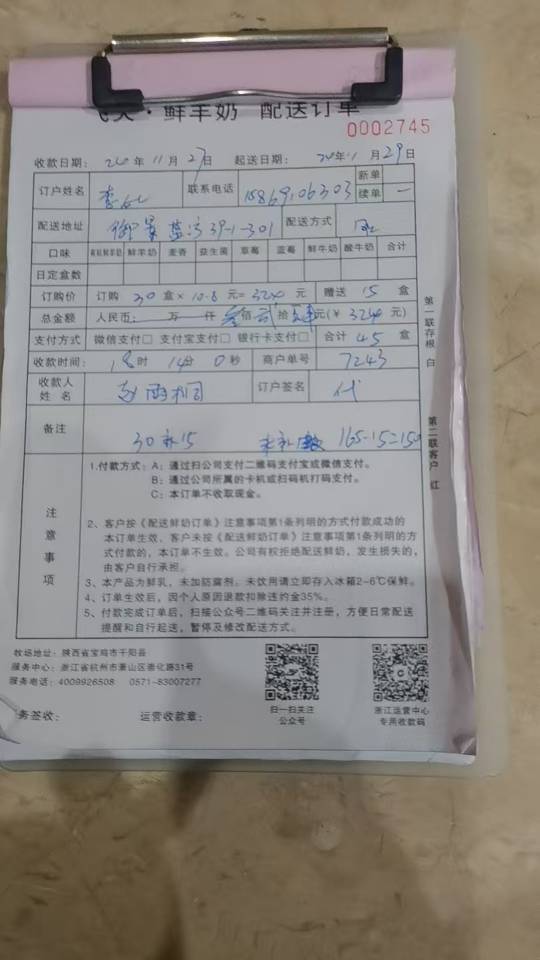 ·鲜羊奶 配送订单
0002745
收款日期: 24年11月27日 起送日期: 24年11月29日
订户姓名 李 联系电话 15869106303 新单 续单 一
配送地址 39-1-301 配送方式
口味 鲜羊奶 麦香 益生菌 草莓 蓝莓 鲜牛奶 酸牛奶 合计
日定盒数
订购价 订购 30 盒× 10.8 元= 324 元 赠送 15 盒
总金额 人民币: 万 仟 叁佰贰拾肆元(¥ 324 元)
支付方式 微信支付□ 支付宝支付□ 银行卡支付□ 合计 45 盒
收款时间: 18时 14分 0秒 商户单号 7243
收款人姓名 赵雨桐 订户签名 代
备注 30 15 165-15=150
注意事项
1.付款方式: A: 通过扫公司支付二维码支付宝或微信支付。
B: 通过公司所属的卡机或扫码机打码支付。
C: 本订单不收取现金。
2、客户按《配送鲜奶订单》注意事项第1条列明的方式付款成功的
本订单生效、客户未按《配送鲜奶订单》注意事项第1条列明的方
式付款的，本订单不生效。公司有权拒绝配送鲜奶，发生损失的，
由客户自行承担。
3、本产品为鲜乳，未加防腐剂。未饮用请立即存入冰箱2-6℃保鲜。
4、订单生效后，因个人原因退款扣除违约金35%。
5、付款完成订单后，扫接公众号二维码关注并注册，方便日常配送
提醒和自行起送，暂停及修改配送方式。
第一联存根 白
第二联客户 红
牧场地址: 陕西省宝鸡市千阳县
服务中心: 浙江省杭州市萧山区崇化路31号
服务电话: 4009926508 0571-83007277
扫一扫关注
公众号
浙江运营中心
专用收款码
务签收: 运营收款章: